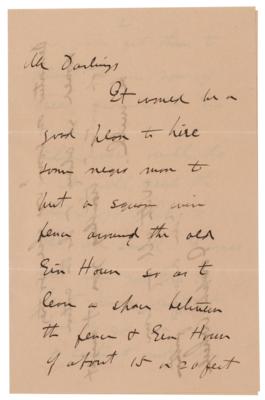 Mr Darlings
It would be a
good plan to hire
some negro men to
put a square wire
fence around the old
Gin House so as to
leave a space between
the fence & Gin House
of about 15 or 20 feet